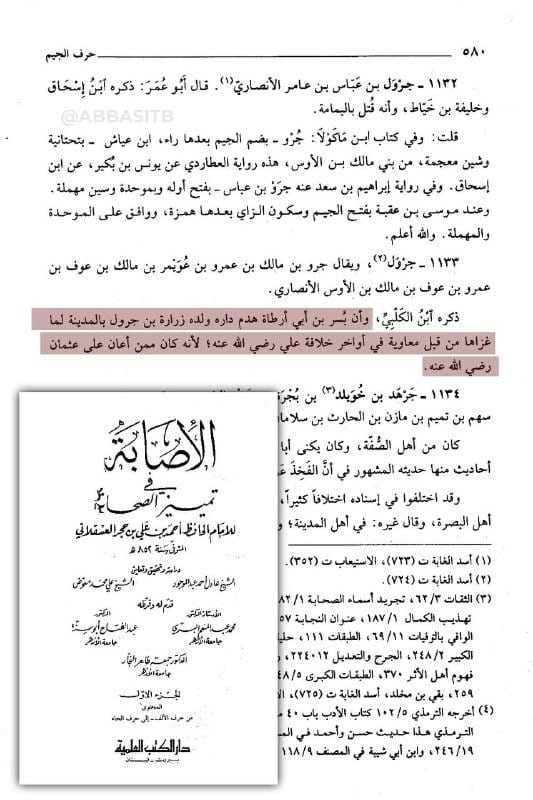 ٥٨٠ حرف الجيم
١١٣٢ ـ جرْوَل بن عَبّاس بن عامر الأنصاريّ(١). قال أَبو عُمَرَ: ذكره ابْنُ إِسْحَاق
وخليفة بن خَيّاط، وأنه قُتل باليمامة.
@ABBASITB
قلت: وفي كتاب ابن مَاكُولَا: جُرْو ـ بضم الجيم بعدها راء، ابن عياش ـ بتحتانية
وشين معجمة، من بني مالك بن الأوس، هذه رواية العطاردي عن يونس بن بُكير، عن ابن
إسحاق. وفي رواية إبراهيم بن سعد عنه جرْو بن عباس ـ بفتح أوله وبموحدة وسين مهملة.
وعند موسى بن عقبة بفتح الجيم وسكون الزاي بعدها همزة، ووافق على الموحدة
والمهملة. والله أعلم.
١١٣٣ ـ جرْوَل(٢)، ويقال جرو بن مالك بن عمرو بن عُوَيْمر بن مالك بن عوف بن
عمرو بن عوف بن مالك بن الأوس الأنصاري.
ذكره ابْنُ الكَلْبِيِّ، وأن بُسر بن أبي أرطاة هدم داره ولده زرارة بن جرول بالمدينة لما
غزاها من قبل معاوية في أواخر خلافة علي رضي الله عنه؛ لأنه كان ممن أعان على عثمان
رضي الله عنه.
١١٣٤ ـ جَرْهَد بن خُوَيلد(٣) بن بُجْرَة
سهم بن تميم بن مازن بن الحارث بن سلامان
كان من أهل الصُّفّة، وكان يكنى أبا
أحاديث منها حديثه المشهور في أنَّ الفَخِذَ
وقد اختلفوا في إسناده اختلافاً كثيراً،
أهل البصرة، وقال غيره: في أهل المدينة؛
(١) أسد الغابة ت (٧٢٣)، الاستيعاب ت (٣٥٢).
(٢) أسد الغابة ت (٧٢٤).
(٣) الثقات ٦٢/٣، تجريد أسماء الصحابة
تهذيب الكمال ١٨٧/١، عنوان النجابة
الوافي بالوفيات ٦٩/١١، الطبقات ١١١،
الكبير ٢٤٨/٢، الجرح والتعديل
فهوم أهل الأثر ٣٧٠، الطبقات الكبرى
٢٥٩، بقي بن مخلد، أسد الغابة ت (٧٢٥)،
(٤) أخرجه الترمذي ١٠٢/٥ كتاب الأدب باب ٤٠
الترمذي هذا حديث حسن وأحمد في
٢٤٦/١٩، وابن أبي شيبة في المصنف ١١٨/٩
الإصابة
في
تمييز الصحابة
للإمام الحافظ أحمد بن علي بن حجر العسقلاني
المتوفى سنة ٨٥٢ هـ
دراسة وتحقيق وتعليق
الشيخ عادل أحمد عبد الموجود الشيخ علي محمد معوض
قدم له وقرظه
الأستاذ الدكتور
محمد عبد المنعم البري
جامعة الأزهر
الدكتور
عبد الفتاح أبو سنة
جامعة الأزهر
الدكتور جمعة طاهر النجار
جامعة الأزهر
الجزء الأول
المحتوى
من حرف الألف ـ إلى حرف الحاء
دار الكتب العلمية
بيروت ـ لبنان